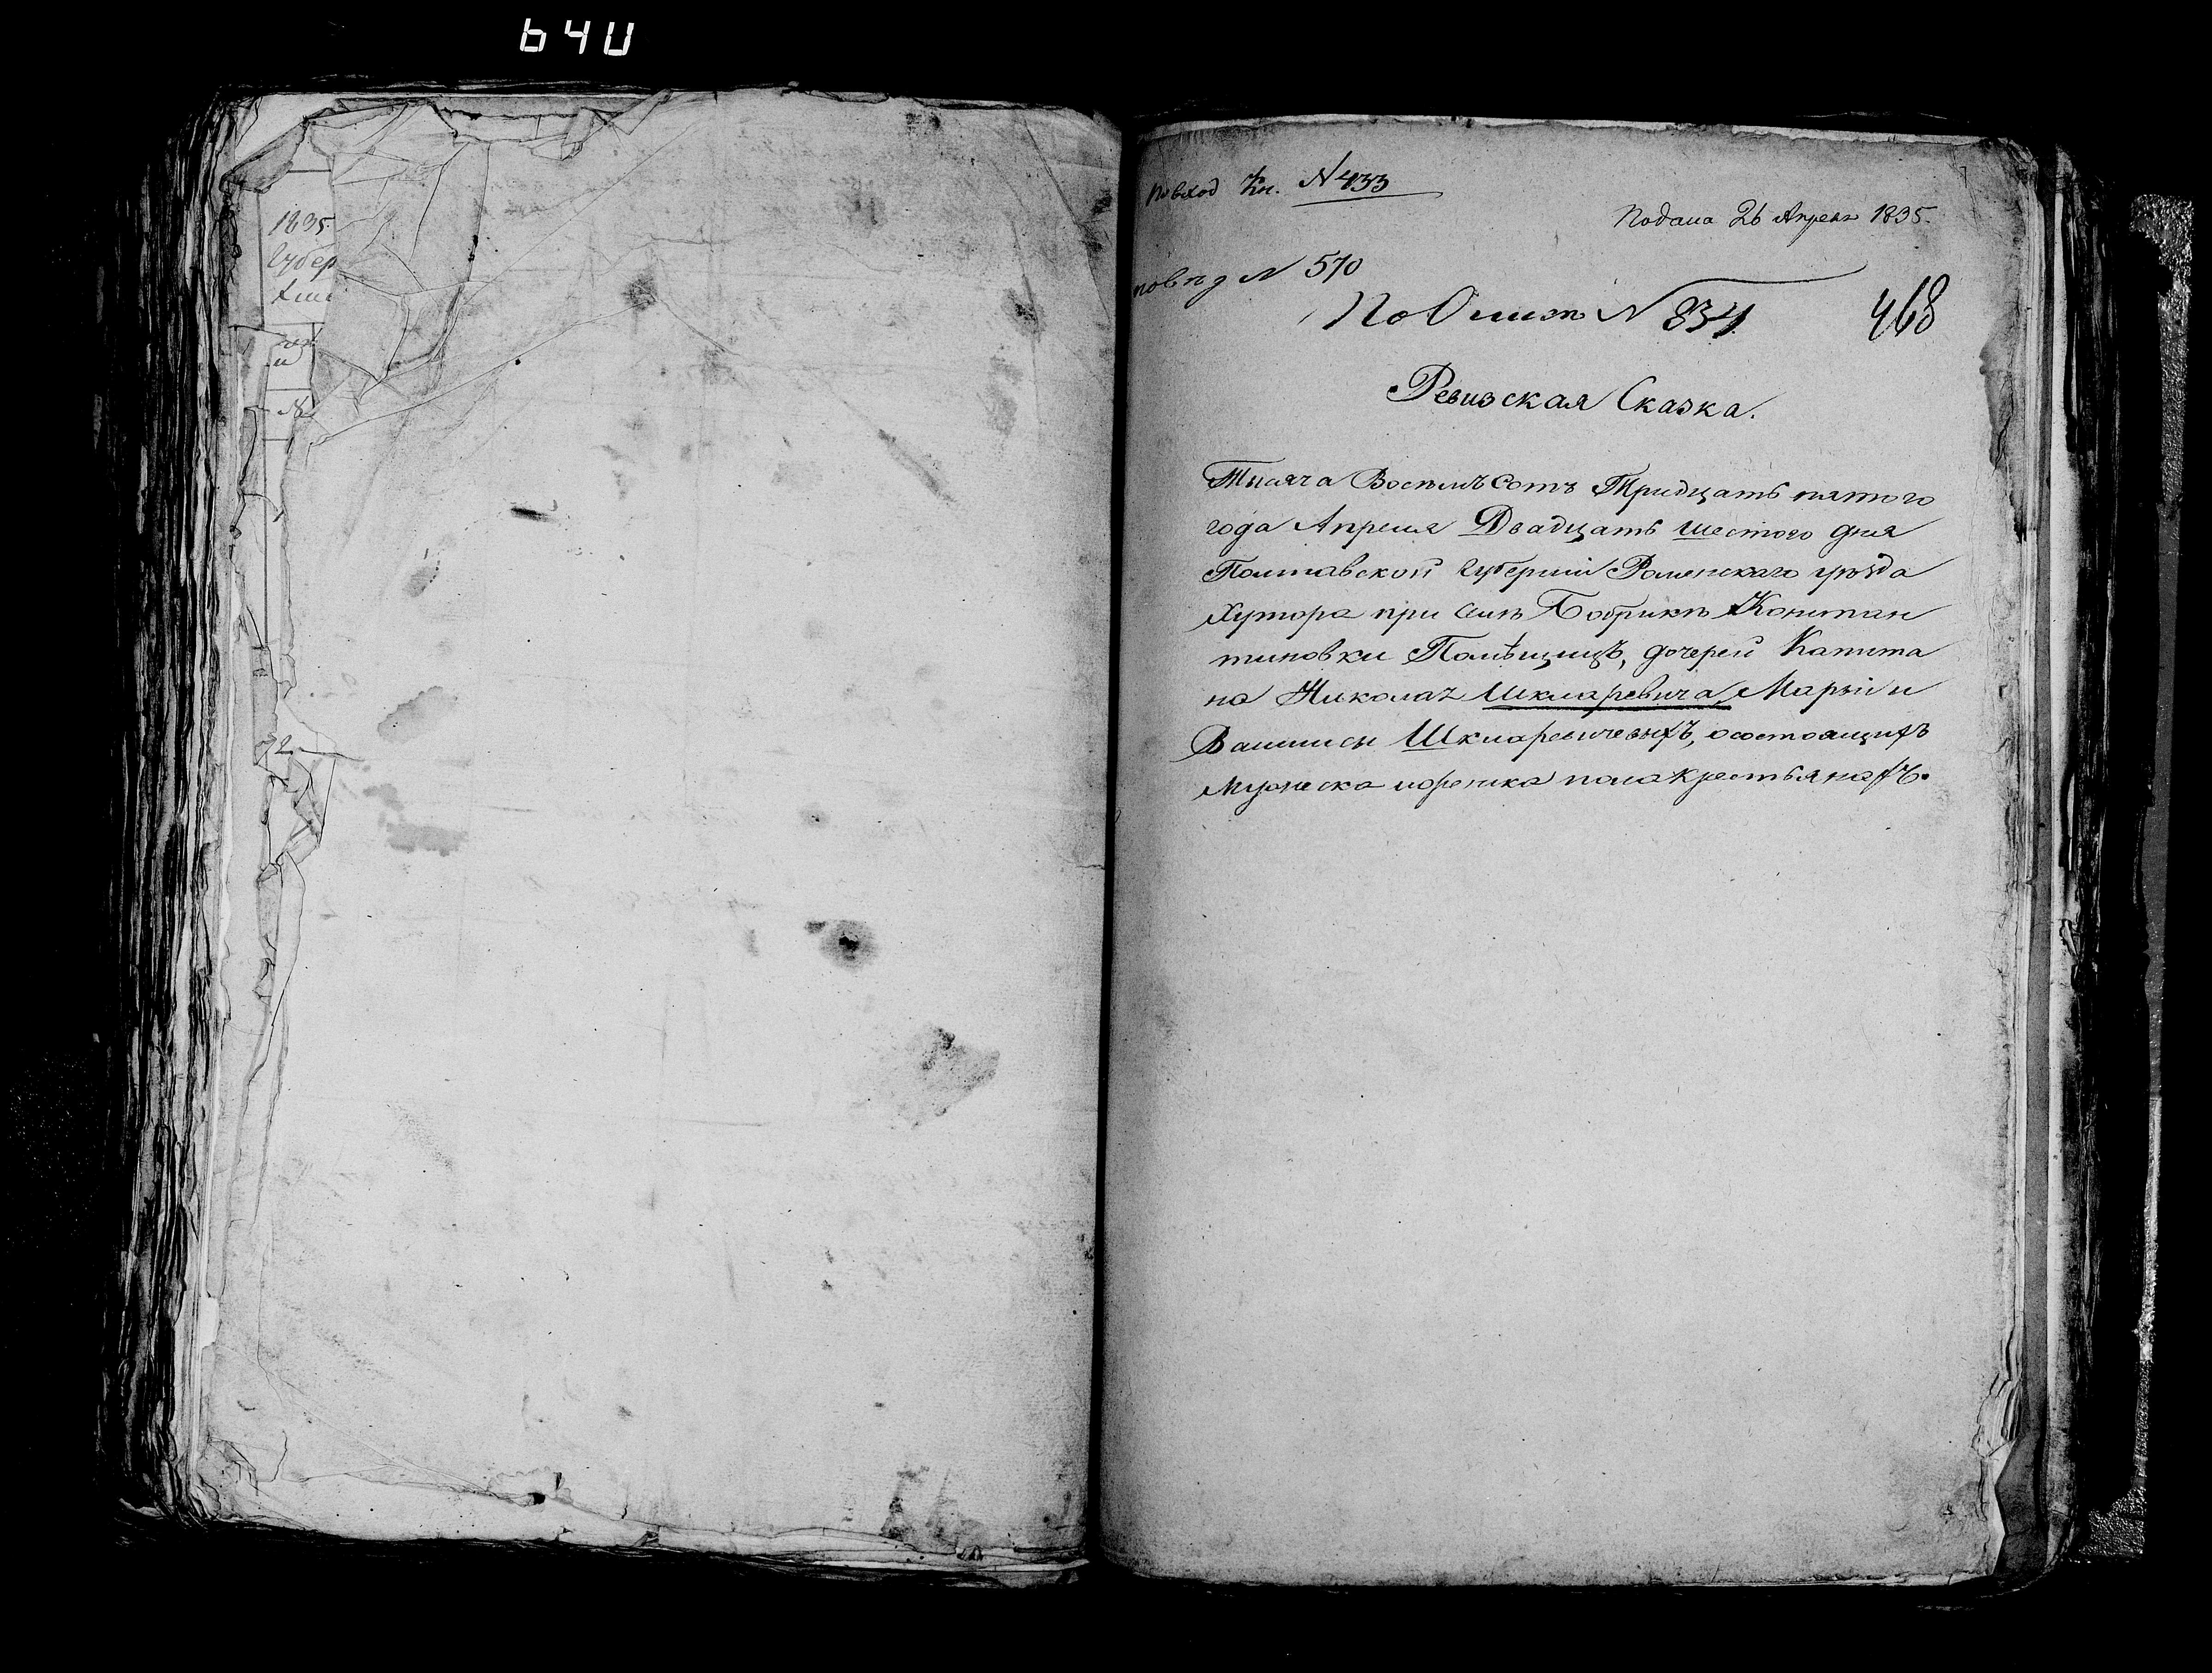 640
1835.
Губер
По вход Кн. N 433
Подана 26 Апреля 1835.
N 570
N 834
468
Ревизская Сказка.
Тысяча Восемьсотъ Тридцать пятого
года Апреля Двадцать шестого дня
Полтавской Губерніи Роменскаго уѣзда
Хутора при селѣ Бобрикѣ Констан
тиновки Помѣщицъ, дочерей Капита
на Николая Шкларевича, Марьи и
Василисы Шкларевичевыхъ, о состоящихъ
мужеска и женска пола крестьянахъ.